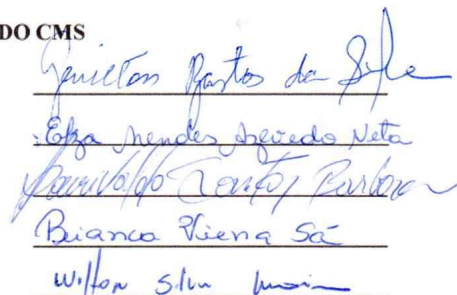 DO CMS
Genilton Bastos da Silva
Mendes Azevedo Neta
Santos Barbosa
Bianca Viena Sá
Wilton Silva